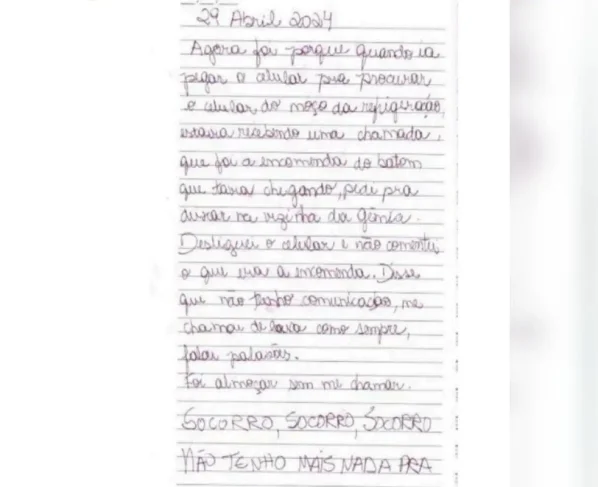 29 Abril 2024
Agora foi porque quando ia
pegar o celular pra procurar
o celular do moço da refrigeração,
estava recebendo uma chamada,
que foi a encomenda do batom
que tava chegando, pedi pra
deixar na vizinha da
Desliguei o celular e não comentei
o que era a encomenda. Disse
que não tenho comunicação, me
chamou de como sempre,
falou palavrões.
Foi almoçar sem me chamar.
SOCORRO, SOCORRO, SOCORRO
NÃO TENHO MAIS NADA PRA